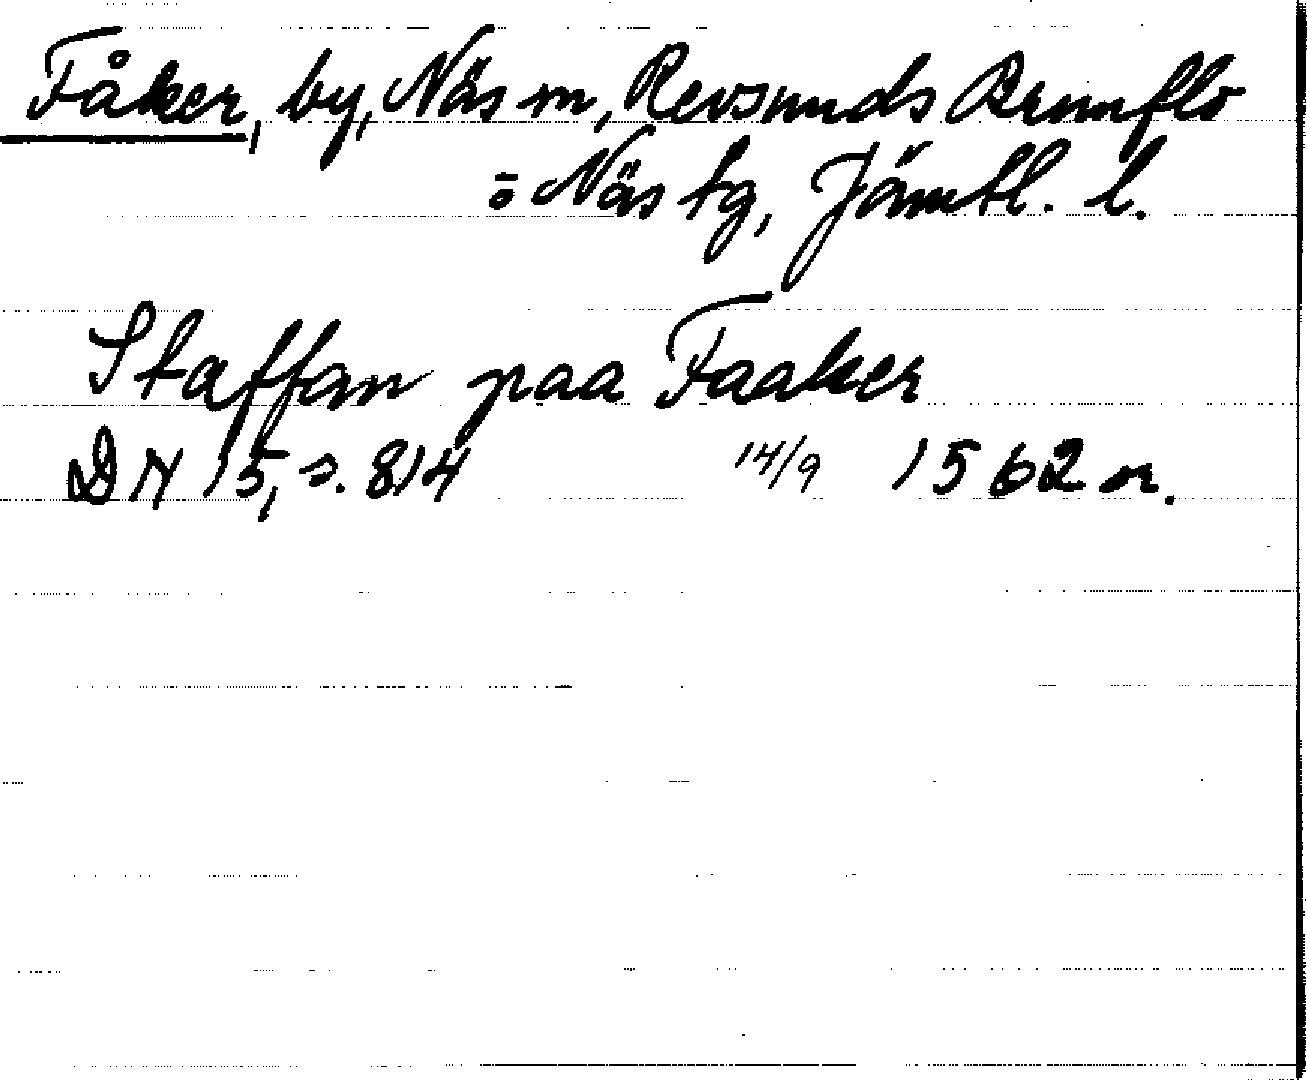 Fåker, by, Näs sn, Revsunds Brunflo
o Näs tg, Jämtl. l.
Staffan paa Faaker
DN 15, s. 814 14/9 1562 or.